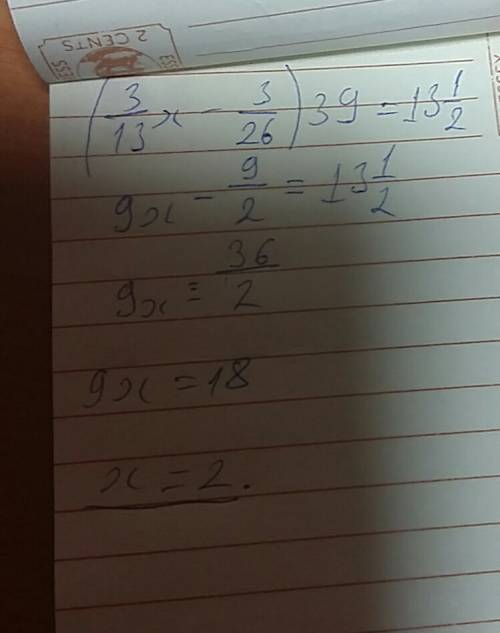 2 CENTS
(3/13 x - 3/26) 39 = 13 1/2
9x - 9/2 = 13 1/2
9x = 36/2
9x = 18
x = 2.